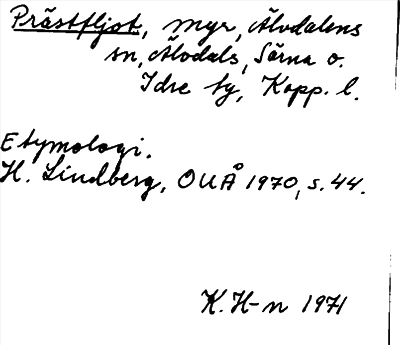 Prästfljot, myr, Älvdalens
sn, Älvdals, Särna o.
Idre tg, Kopp. l.
Etymologi.
H. Lindberg, OUÅ 1970, s. 44.
K. H-n 1971